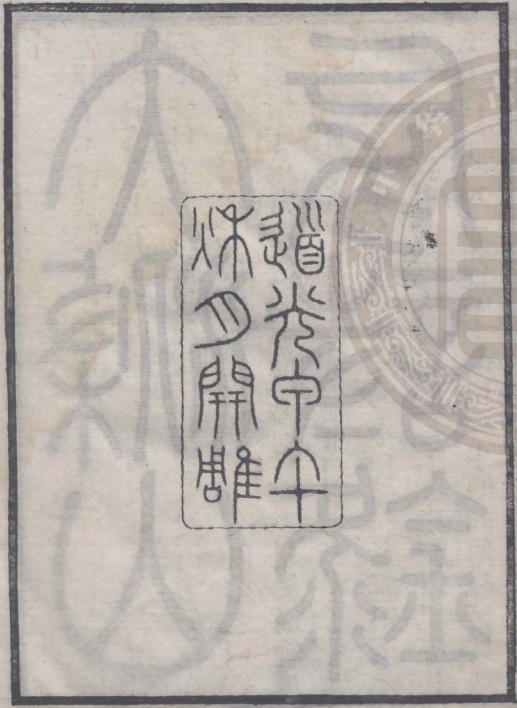 道光甲午
秌月開雕